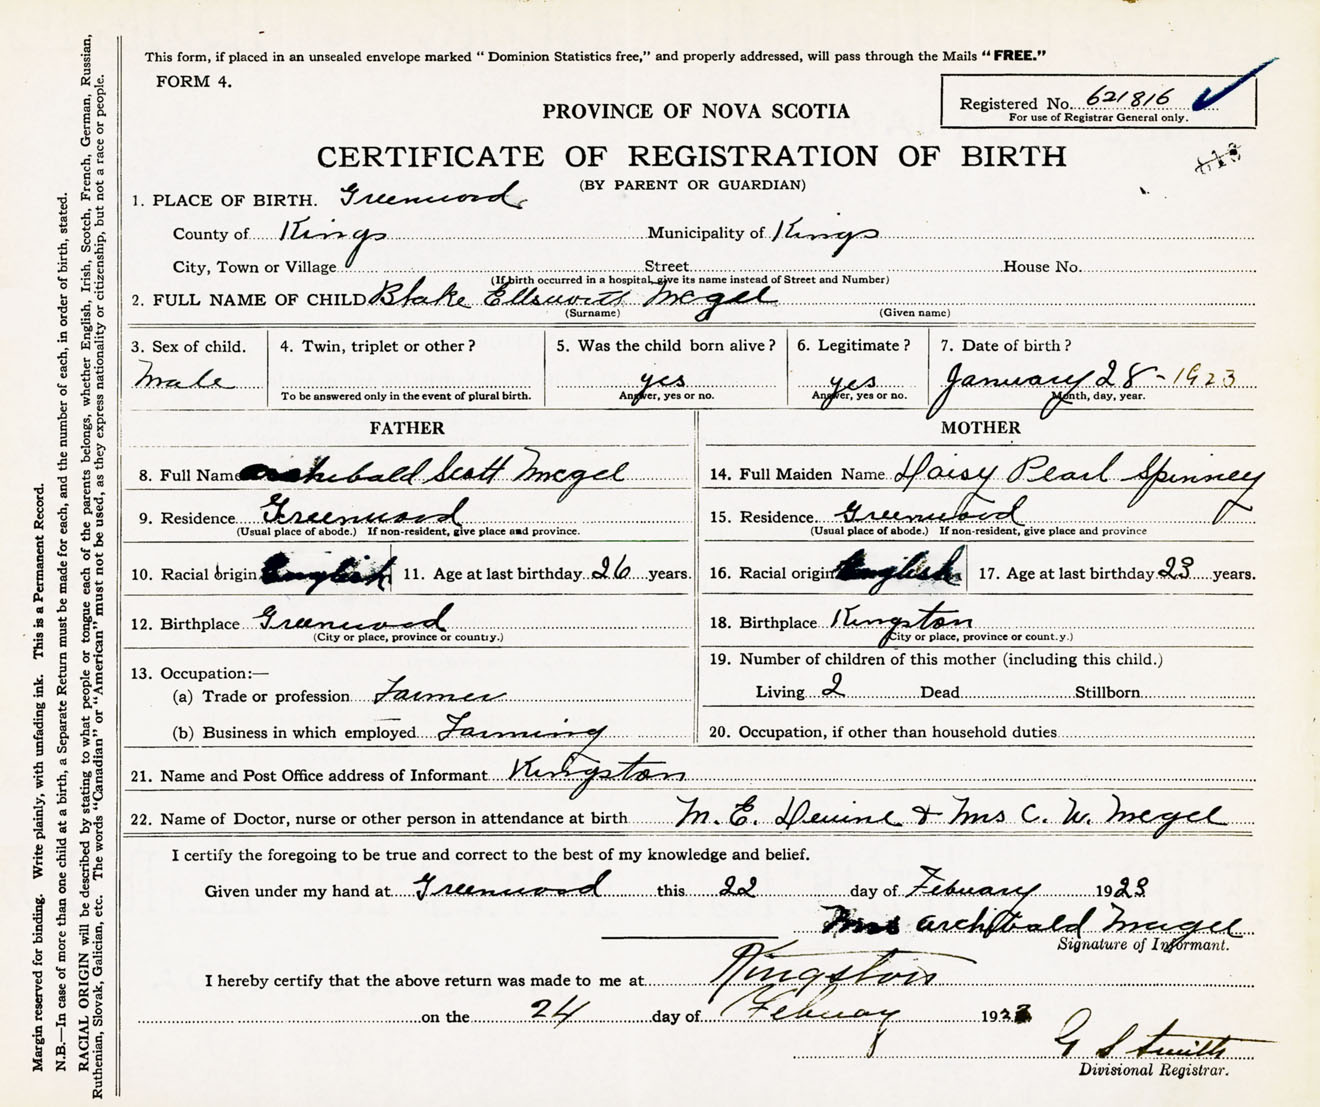 This form, if placed in an unsealed envelope marked " Dominion Statistics free," and properly addressed, will pass through the Mails " FREE."
FORM 4.
Registered No. 621816
For use of Registrar General only.
PROVINCE OF NOVA SCOTIA
CERTIFICATE OF REGISTRATION OF BIRTH
(BY PARENT OR GUARDIAN)
1. PLACE OF BIRTH. Greenwood
County of Kings Municipality of Kings
City, Town or Village Street House No.
(If birth occurred in a hospital, give its name instead of Street and Number)
2. FULL NAME OF CHILD Blake Ellsworth Magel
(Surname) (Given name)
3. Sex of child. 4. Twin, triplet or other ? 5. Was the child born alive ? 6. Legitimate ? 7. Date of birth ?
Male yes yes January 28 - 1923
To be answered only in the event of plural birth. Answer, yes or no. Answer, yes or no. Month, day, year.
FATHER MOTHER
8. Full Name Archibald Scott Magel 14. Full Maiden Name Daisy Pearl Spinney
9. Residence Greenwood 15. Residence Greenwood
(Usual place of abode.) If non-resident, give place and province. (Usual place of abode.) If non-resident, give place and province
10. Racial origin English 11. Age at last birthday 26 years. 16. Racial origin English 17. Age at last birthday 23 years.
12. Birthplace Greenwood 18. Birthplace Kingston
(City or place, province or county.) (City or place, province or count.y.)
13. Occupation:— 19. Number of children of this mother (including this child.)
(a) Trade or profession Farmer Living 2 Dead Stillborn
(b) Business in which employed Farming 20. Occupation, if other than household duties
21. Name and Post Office address of Informant Kingston
22. Name of Doctor, nurse or other person in attendance at birth M. E. & Mrs C. W. Magel
I certify the foregoing to be true and correct to the best of my knowledge and belief.
Given under my hand at Greenwood this 22 day of Febuary 1923
Mrs Archibald Magel
Signature of Informant.
I hereby certify that the above return was made to me at Kingston
on the 24 day of Febuay 192
G S Smith
Divisional Registrar.
Margin reserved for binding. Write plainly, with unfading ink. This is a Permanent Record.
N.B.—In case of more than one child at a birth, a Separate Return must be made for each, and the number of each, in order of birth, stated.
RACIAL ORIGIN will be described by stating to what people or tongue each of the parents belongs, whether English, Irish, Scotch, French, German, Russian,
Ruthenian, Slovak, Galician, etc. The words "Canadian" or "American" must not be used, as they express nationality or citizenship, but not a race or people.